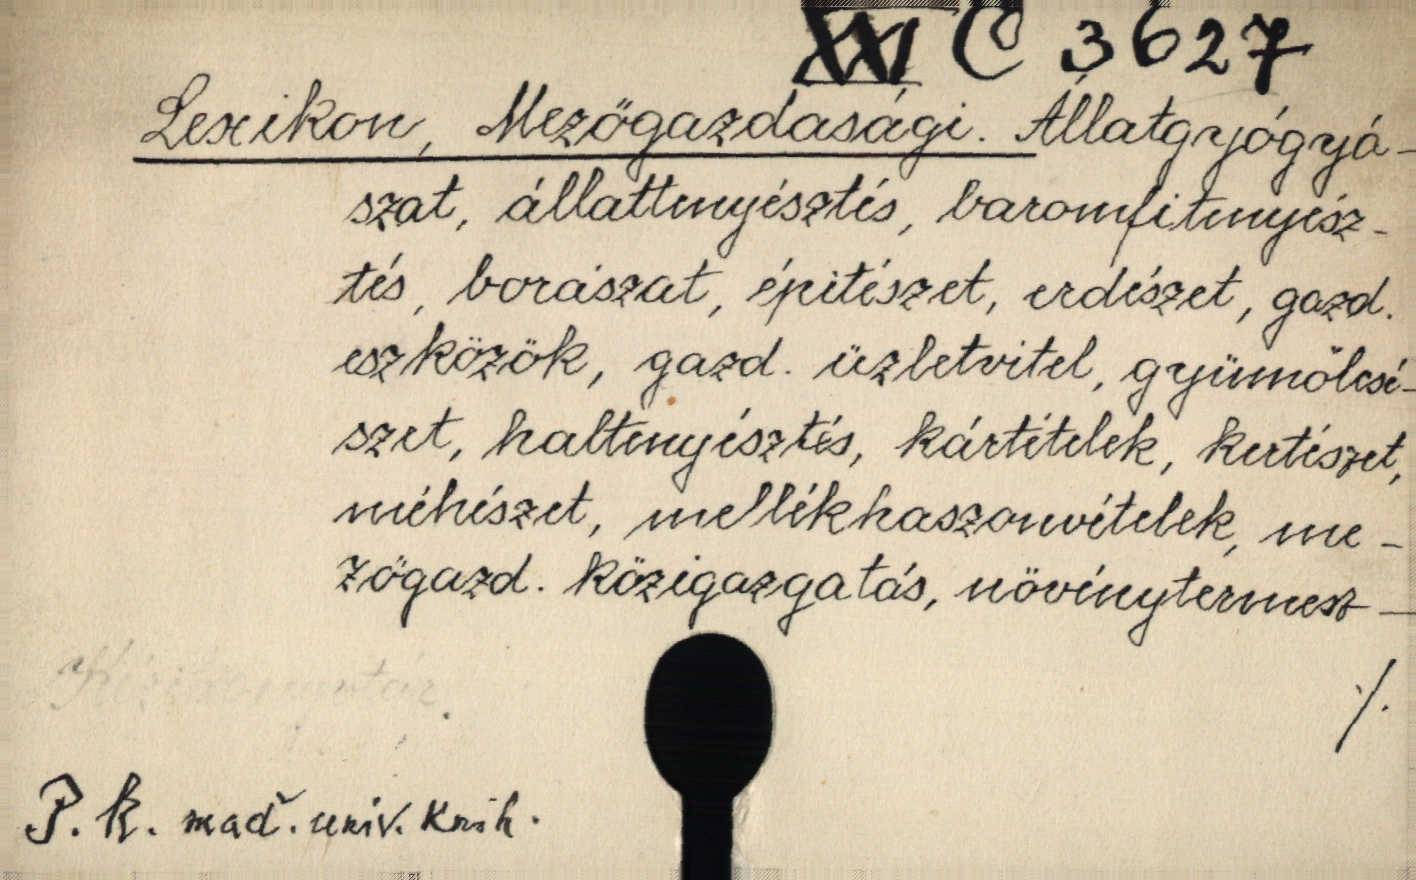 XXI C 3627
Lexikon, Mezőgazdasági. Állatgyógyá-
szat, állattenyésztés, baromfitenyész-
tés, borászat, épitészet, erdészet, gazd.
eszközök, gazd. üzletvitel, gyümölcsé-
szet, haltenyésztés, kártételek, kertészet,
méhészet, mellékhaszonvételek, me-
zőgazd. közigazgatás, növénytermesz-
Kézikönyvtár.
./.
P. k. maď. univ. knih.